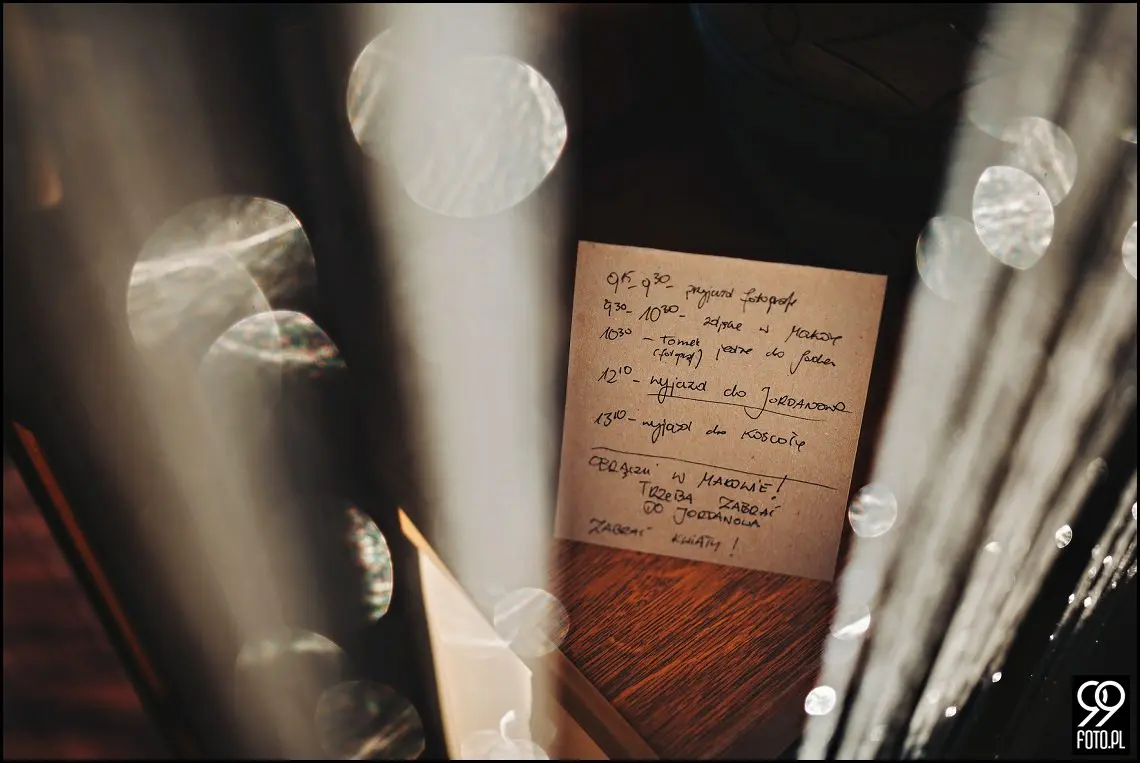 9¹⁵-9³⁰- przyjazd fotografa
9³⁰-10³⁰- zdjęcie w Makowie
10³⁰ - Tomek jedzie do
(fotograf)
12¹⁰ - wyjazd do JORDANOWA
13¹⁰ - wyjazd do KOŚCOŁA
OBRĄCZKI W MAKOWIE!
TRZEBA ZABRAĆ
DO JORDANOWA
ZABRAĆ KWIATY!
99
FOTO.PL